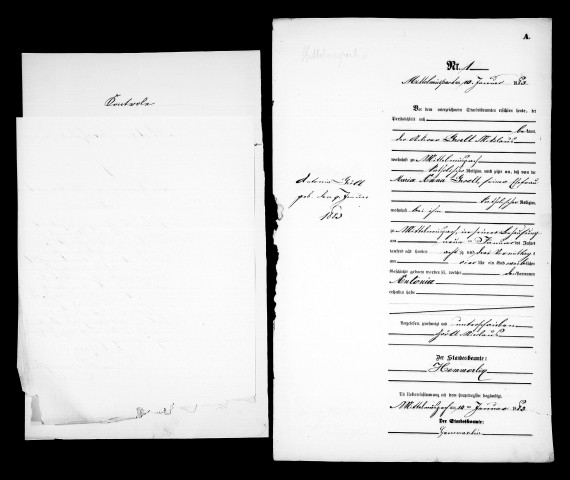 Kontrole
A.
Nr. 1
Mittelmuespach am 10. Januar 1883.
Vor dem unterzeichneten Standesbeamten erschien heute, der
Persönlichkeit nach
bekannt,
der Ackerer Gsell
wohnhaft zu Mittelmuespach
katholischer Religion, und zeigte an, daß von der
Maria Anna Gsell, seiner Ehefrau
katholischer Religion,
wohnhaft bei ihm
zu Mittelmuespach in seiner Behausung
am neunten Januar des Jahres
tausend acht hundert achtzig und drei Vormittags
um vier Uhr ein Kind weiblichen
Geschlechts geboren worden sei, welches den Vornamen
Antonia
erhalten habe
Antonia Gsell
geb. den 9. Januar
1883
Vorgelesen, genehmigt und unterschrieben
Gsell
Der Standesbeamte:
Hemmerlin
Die Uebereinstimmung mit dem Hauptregister beglaubigt.
Mittelmuespach am 10ten Januar 1883.
Der Standesbeamte:
Hemmerlin